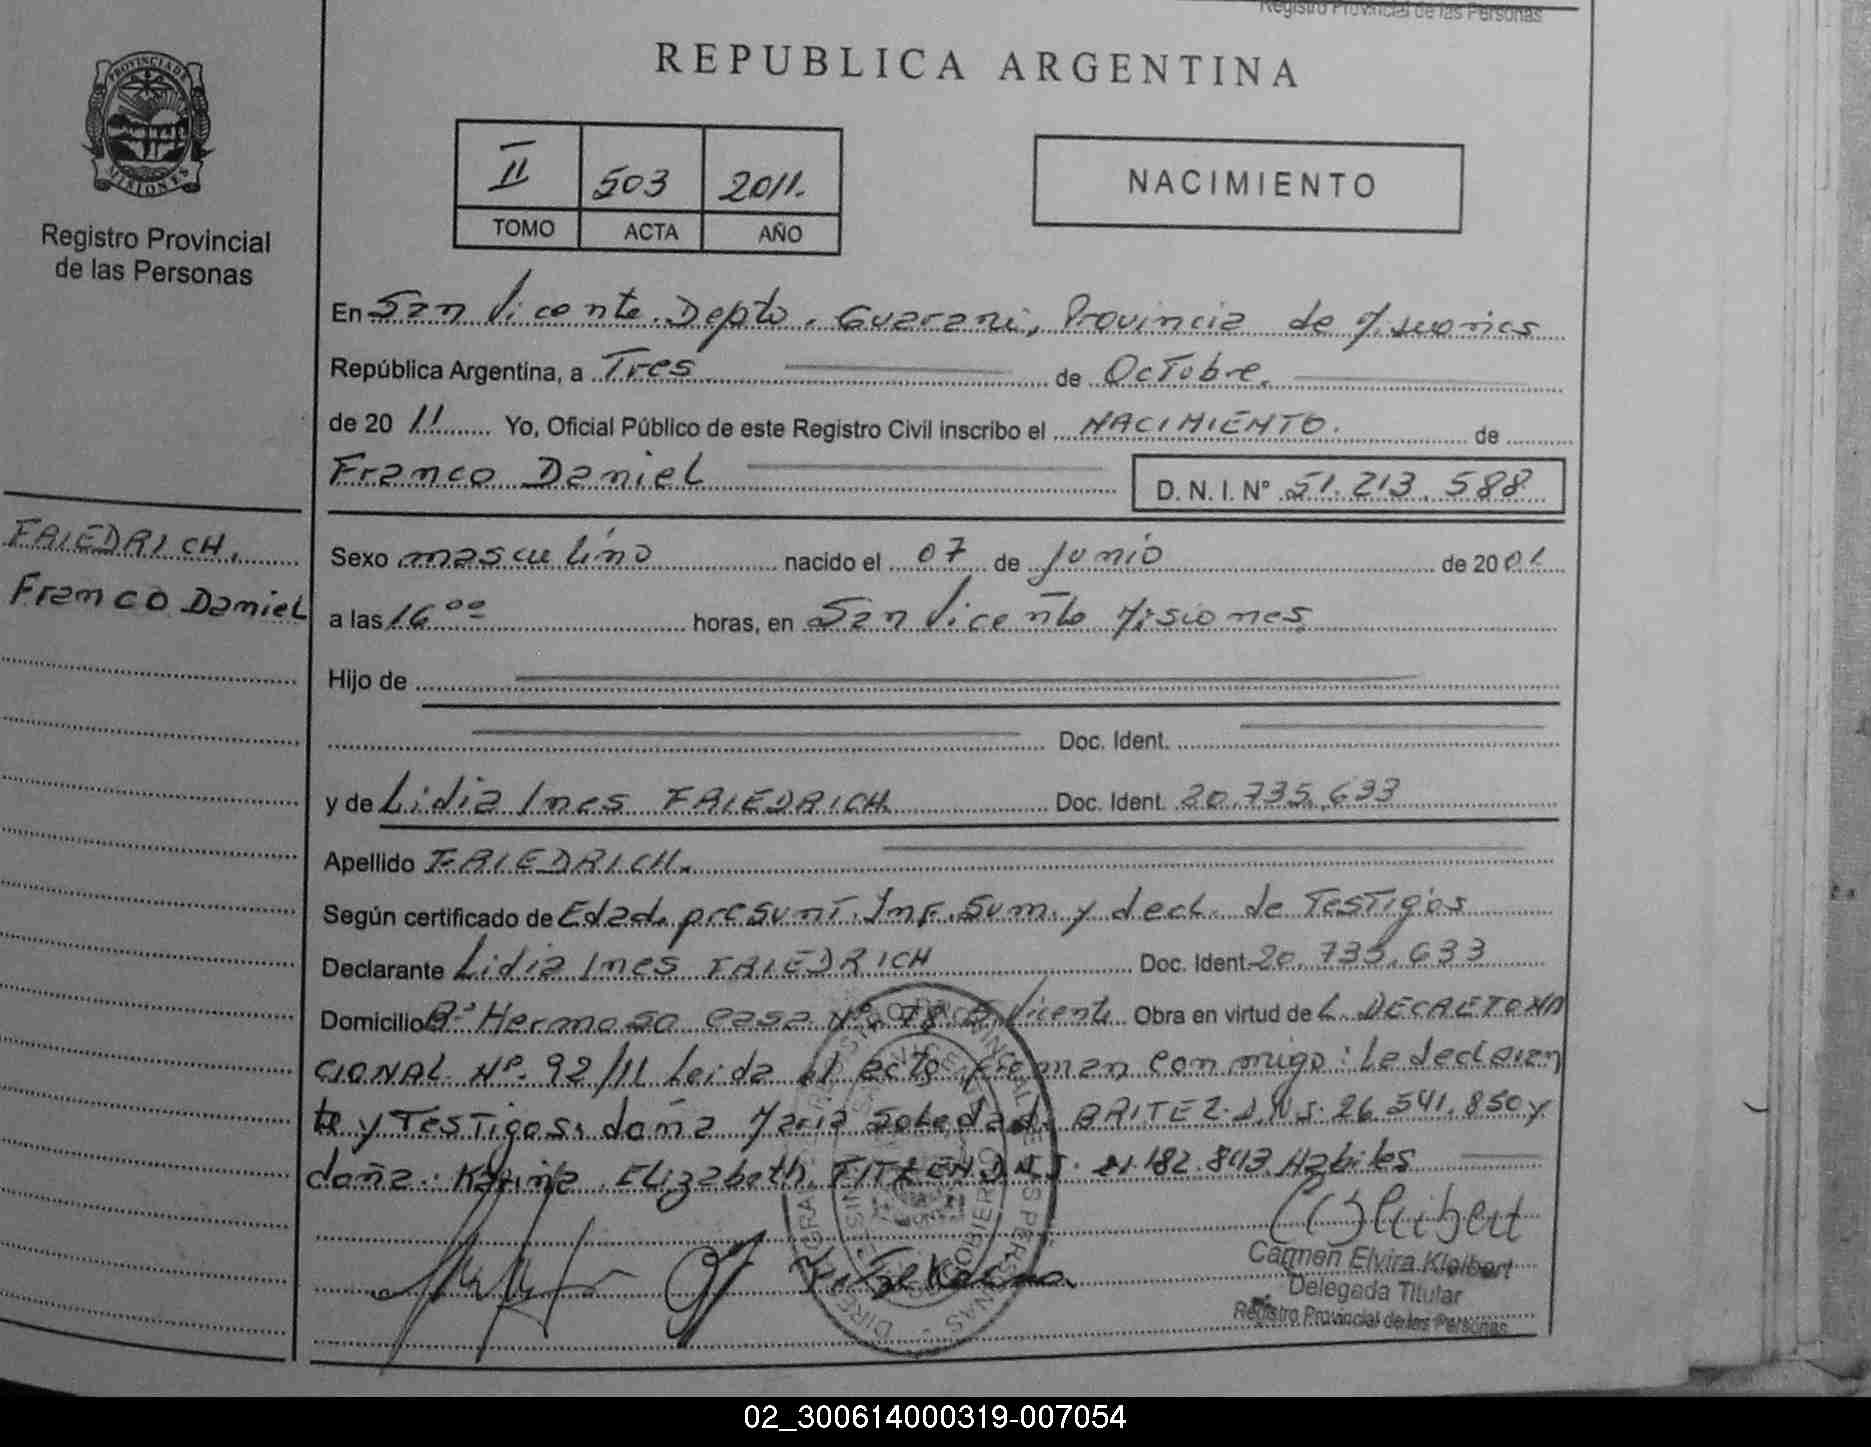 Registro Provincial de las Personas
REPUBLICA ARGENTINA
PROVINCIA DE
MISIONES
Registro Provincial
de las Personas
II 503 2011.
TOMO ACTA AÑO
NACIMIENTO
En San Vicente. Depto. Guarani, Provincia de Misiones
República Argentina, a Tres de Octubre.
de 20 11 Yo, Oficial Público de este Registro Civil inscribo el NACIMIENTO. de
Franco Daniel D. N. I. Nº 51.213.588
FRIEDRICH.
Franco Daniel
Sexo masculino nacido el 07 de Junio de 2001
a las 16ºº horas, en San Vicente Misiones.
Hijo de
Doc. Ident.
y de Lidia Ines FRIEDRICH Doc. Ident. 20.735.633
Apellido FRIEDRICH.
Según certificado de Edad. presunt. Inf. Sum. y decl. de Testigos
Declarante Lidia Ines FRIEDRICH Doc. Ident. 20.735.633
Domicilio Bº Hermoso casa Nº 78 S. Vicente Obra en virtud de L. DECRETO NA
CIONAL Nº. 92/11 Leida el acto firman conmigo: La declaran
te y Testigos: doña Maria Soledad BRITEZ. D.N.I. 26.541.850 y
doña. Karina Elizabeth D.N.I. 182.843 Habiles
Carmen Elvira Kleibert
Delegada Titular
Registro Provincial de las Personas
02_300614000319-007054